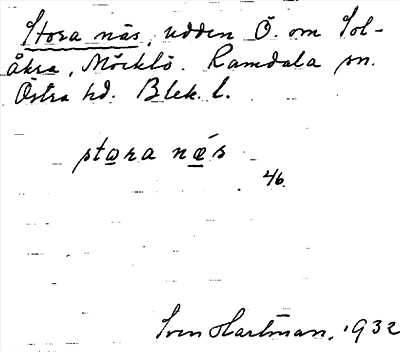 Stora näs, udden Ö. om Sol-
åkra, Möcklö. Ramdala sn.
Östra hd. Blek. l.
stora næs
46.
Sven Hartman, 1932